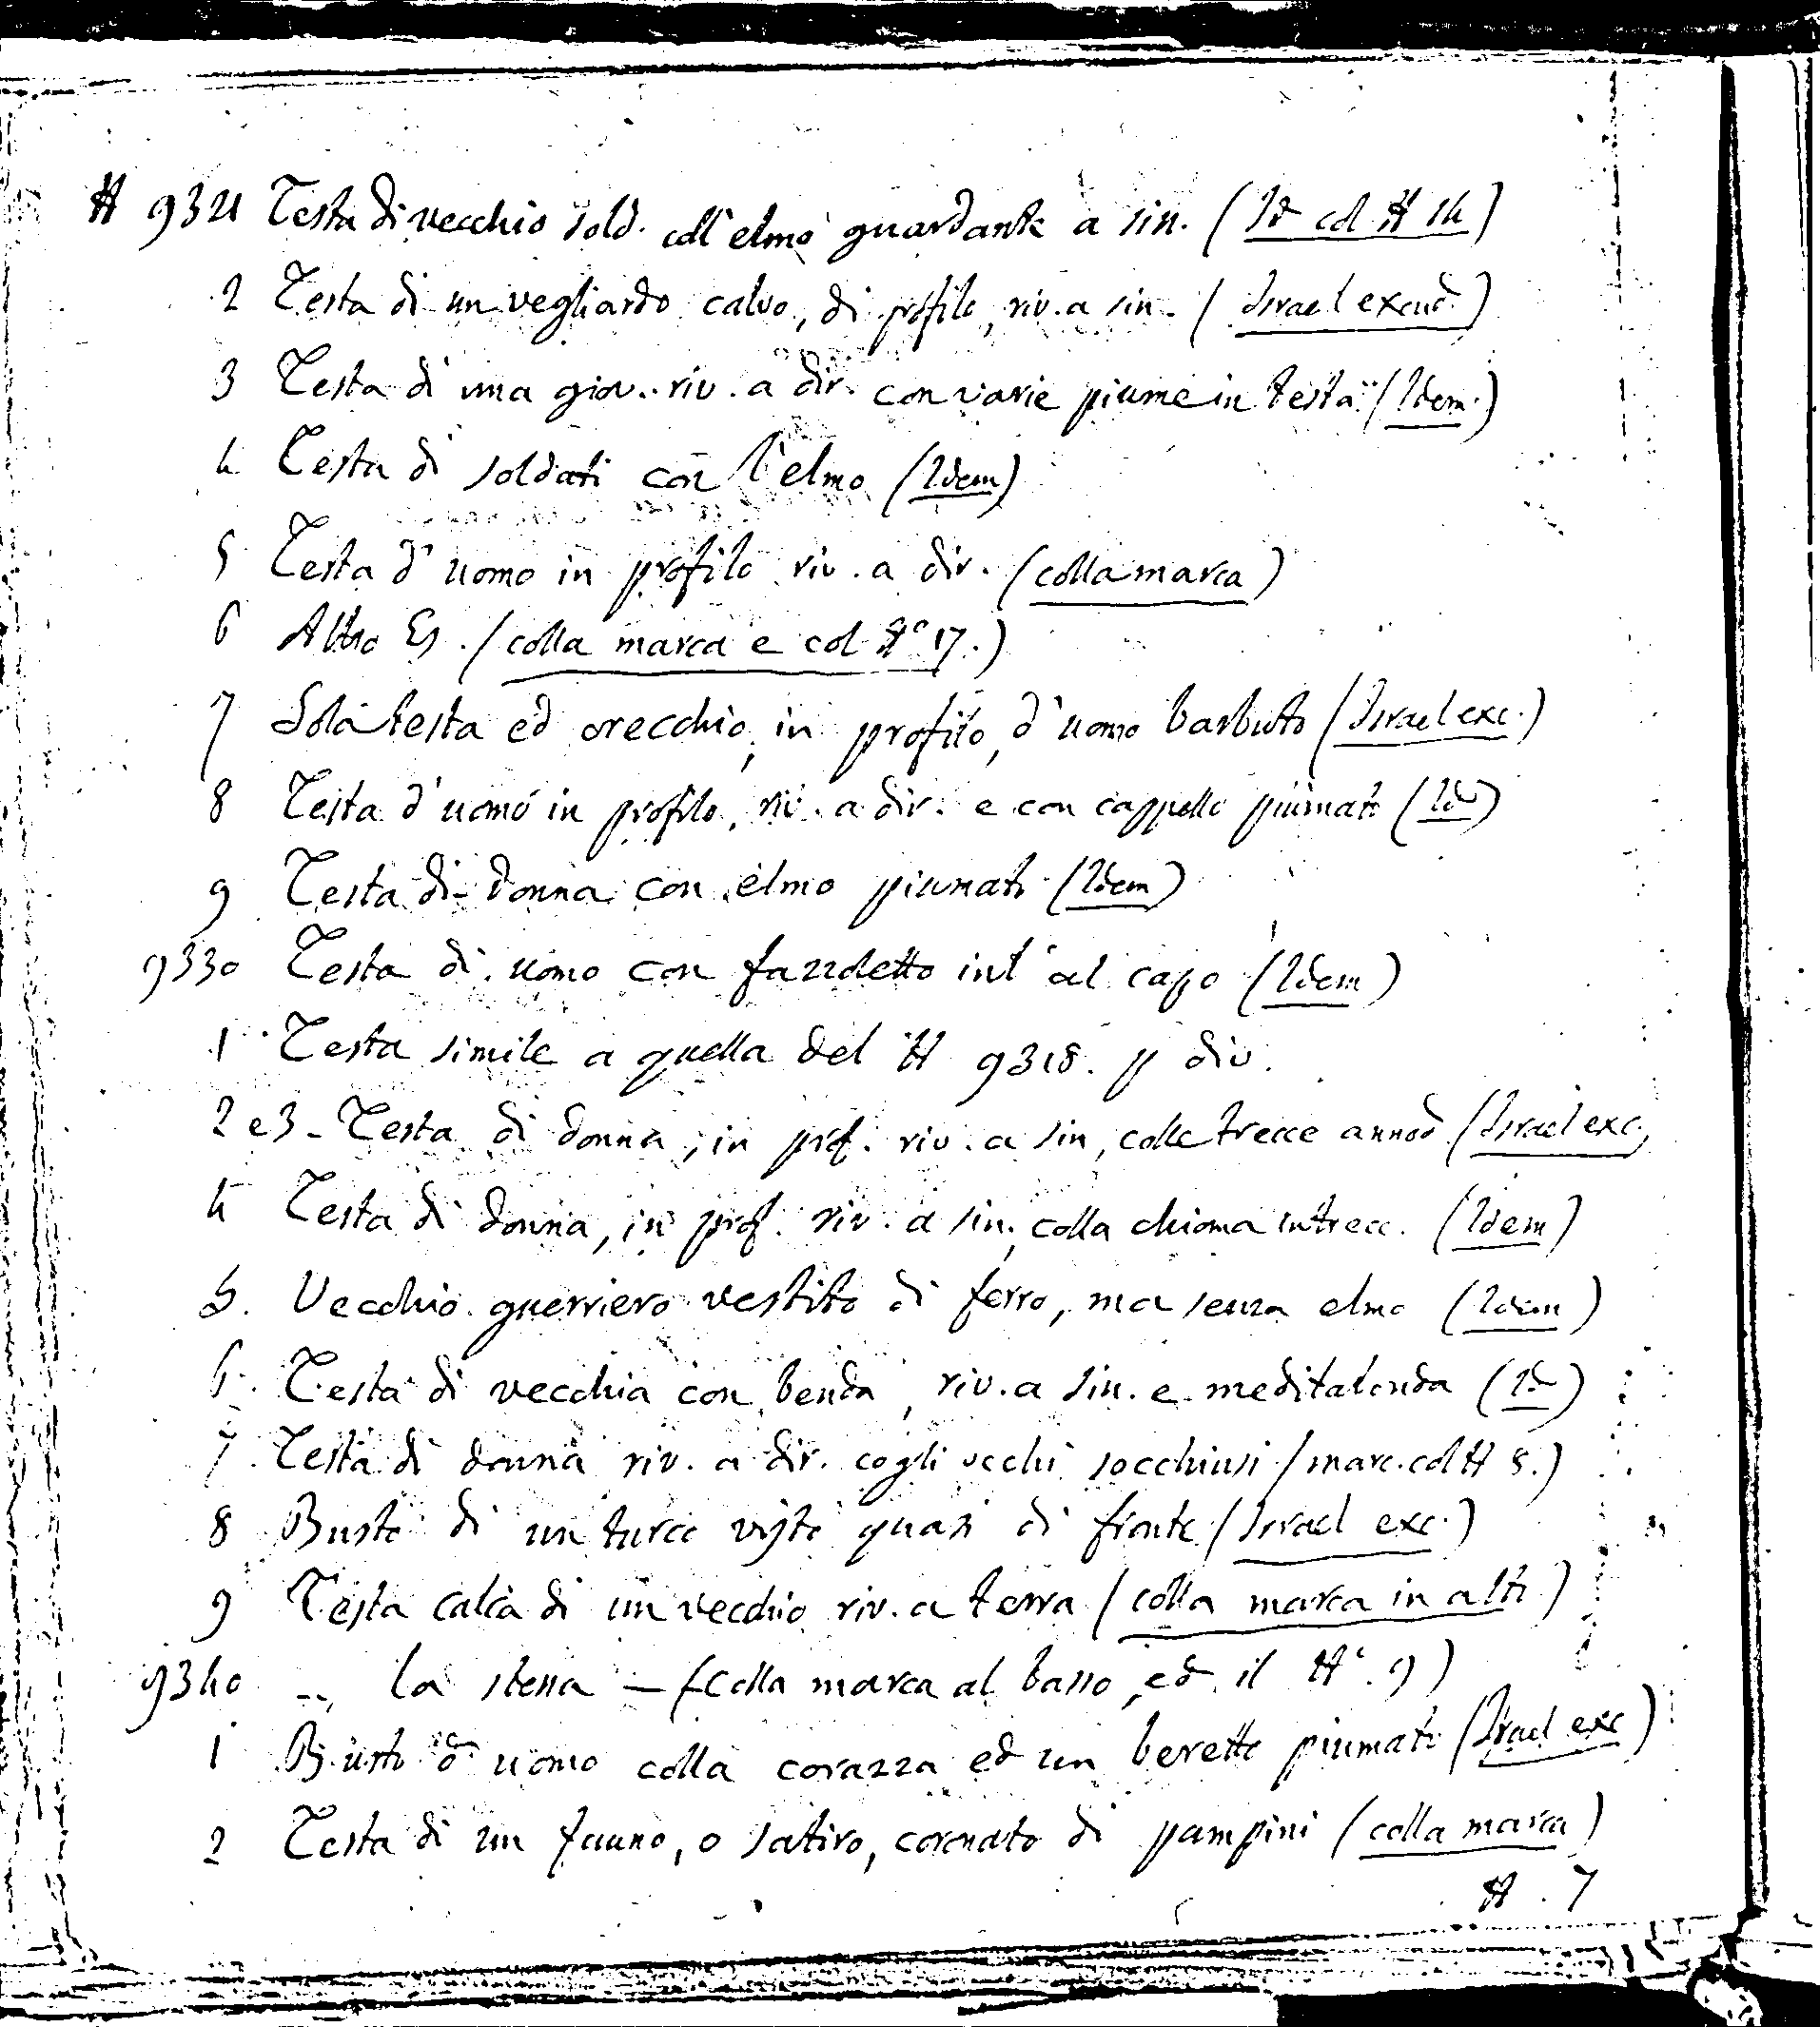 N 9321 Testa di vecchio sold. coll'elmo guardante a sin. (Id col N 14)
2 Testa di un vegliardo calvo, di profilo, riv. a sin. (Israel excud.)
3 Testa di una giov. riv. a dir. con varie piume in testa (Idem.)
4 Testa di soldati con l'elmo (Idem)
5 Testa d'uomo in profilo riv. a dir. (colla marca)
6 Altro Es. (colla marca e col N° 17.)
7 Sola testa ed orecchio, in profilo, d'uomo barbuto (Israel exc.)
8 Testa d'uomo in profilo, riv. a dir. e con cappello piumato (Id)
9 Testa di donna con elmo piumato (Idem)
9330 Testa di uomo con fazzoletto int' al capo (Idem)
1 Testa simile a quella del N 9318. p div.
2 e 3 - Testa di donna, in prof. riv. a sin, colle trecce annod (Israel exc.
4 Testa di donna, in prof. riv. a sin, colla chioma intrecc. (Idem)
5. Vecchio guerriero vestito di ferro, ma senza elmo (Idem)
6. Testa di vecchia con benda, riv. a sin. e meditabonda (Id)
7. Testa di donna riv. a dir. cogli occhi socchiusi (marc. col N 8.)
8 Busto di un turco visto quasi di fronte (Israel exc.)
9 Testa calca di un vecchio riv. a terra (colla marca in alto)
9340 -- la stessa - (Colla marca al basso, ed il N°. 9)
1 Busto d'uomo colla corazza ed un beretto piumato (Israel exc)
2 Testa di un fauno, o satiro, coronato di pampini (colla marca)
N. 7